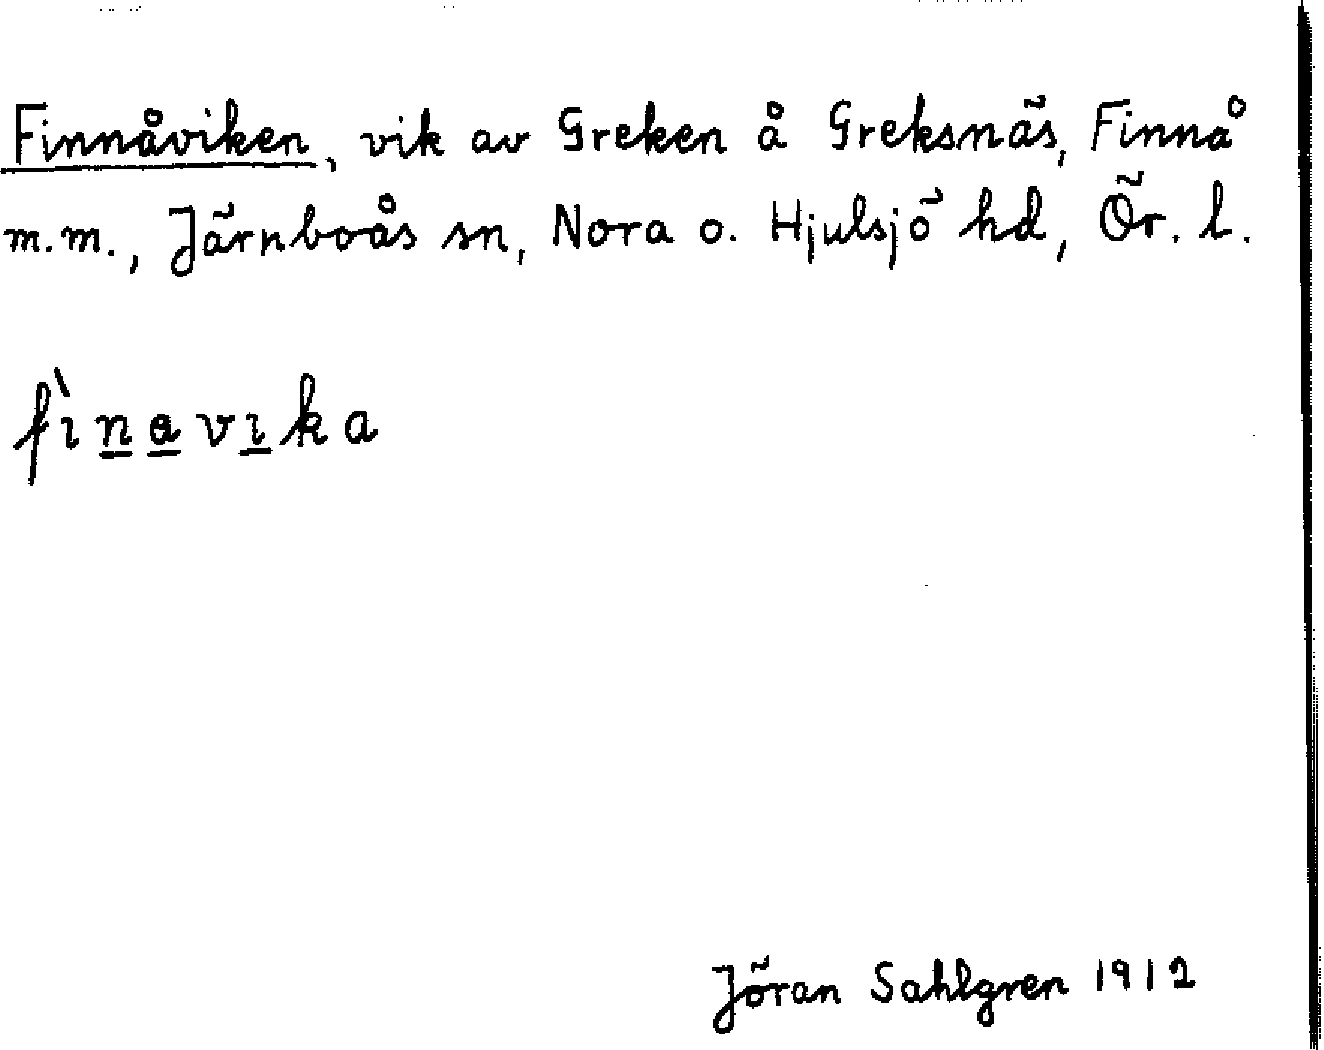 Finnåviken, vik av Greken å Greksnäs, Finnå
m.m., Järnboås sn, Nora o. Hjulsjö hd, Ör. l.
fìnavika
Jöran Sahlgren 1912